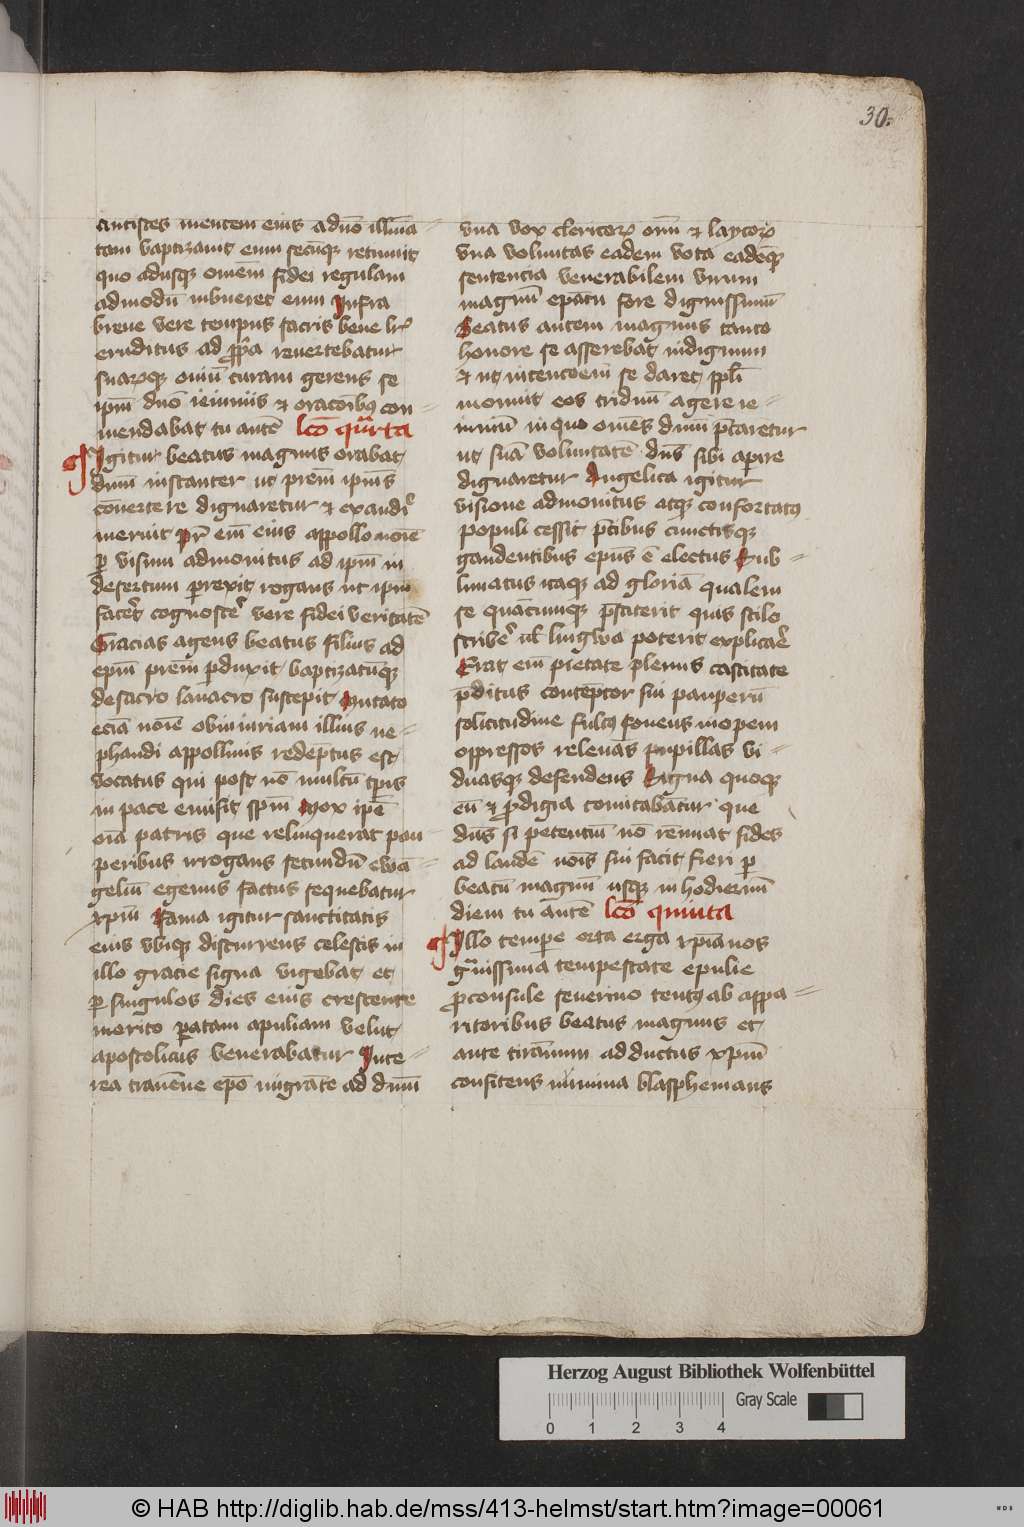 30.
antistes mentem eius a dn̄o illūia
tam baptizauit eum secūqꝫ retinuit
quo adusqꝫ omēm fidei regulam
admodū inbueret eum Infra
breue vere tempus sacris bene lr̄is
eruditus ad ꝓp̄a reuertebatur
suarꝫqꝫ ouiū curam gerens se
ip̄m dn̄o ieiuniis ⁊ oratōibꝫ con=
mendabat tu autē lc̄o qͣrta
Igitur beatus magnus orabat
dnm̄ instanter ut pr̄em ipius
cōuertere dignaretur ⁊ exaudiri
meruit Pr̄ em̄ eius appollo noīe
ꝑ visum admonitus ad ip̄m in
desertum ꝑrexit rogans ut ip̄m
facet̄ cognosce᷑ vere fidei veritatē
Gracias agens beatus filius ad
ep̄m prēm ꝑduxit baptizatūqꝫ
de sacro lauacro suscepit Mutato
eciā noīe ob iniuriam illius ne=
phandi appollinis redēptus est
vocatus qui post nō multū tp̄is
in pace emisit sp̄m Mox ip̄e
oīa patris que relinquerat pau
peribus irrogans secundū ewā=
geliū egenus factus sequebatur
xp̄m Fama igitur sanctitatis
eius vbiqꝫ discurrens celestis in
illo gracie signa vigebat et
ꝑ singulos dies eius crescente
merito ꝑ totam apuliam velut
apostolicus venerabatur Inte=
rea tranēne ep̄o migrāte ad dnm̄
vna vox clericorꝫ oīm ⁊ laycorꝫ
vna voluntas eadem vota eadēqꝫ
sentencia venerabilem virum
magnū ep̄atu fore dignissimū
Beatus autem magnus tanto
honore se asserebat indignum
⁊ ut intencōem se daret pp̄li
monuit eos triduū agere ie=
iuniū in quo omēs dnm̄ p̄caretur
ut suā voluntatē dn̄s sibi aꝑire
dignaretur Angelica igitur
visione admonitus atqꝫ confortatꝫ
populi cessit p̄cibus cunctisqꝫ
gaudentibus ep̄us ē electus Sub=
limatus itaqꝫ ad gloriā qualem
se quācumqꝫ p̄stiterit quis stilo
scribe᷑ ul̄ lingwa poterit explica᷑e
Erat em̄ pietate plenus castitate
p̄ditus contēptor sui pauperū
solicitudine fultꝫ fouens inopem
oppressos releuās pupillas vi=
duasqꝫ defendens Signa quoqꝫ
eū ⁊ ꝓdigia comitabātur que
dn̄s si petentiū nō renuat fides
ad laudē noīs sui facit fieri ꝑ
beatū magnū usqꝫ in hodiernū
diem tu autē lc̄o quinta
Illo tempe orta erga xp̄ianos
gͣuissima tempestate epulie
ꝓconsule seuerino tentꝫ ab appa=
ritoribus beatus magnus et
ante tirānum adductus xp̄m
confitens numina blasphemans
Herzog August Bibliothek Wolfenbüttel
Gray Scale
0 1 2 3 4
© HAB http://diglib.hab.de/mss/413-helmst/start.htm?image=00061